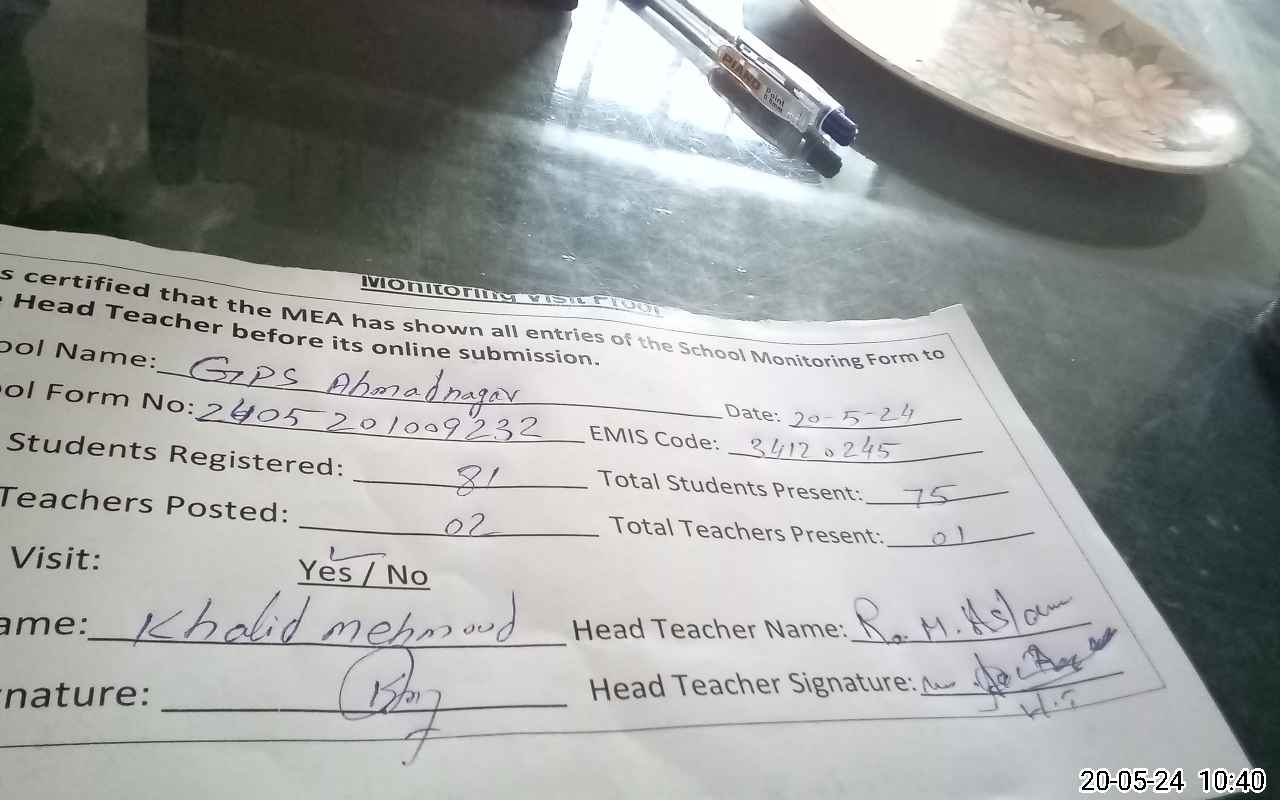 PIANO
Point
0.8mm
Monitoring Visit Proof
s certified that the MEA has shown all entries of the School Monitoring Form to
Head Teacher before its online submission.
ool Name: GPS Ahmadnagar Date: 20-5-24
ol Form No: 2405201009232 EMIS Code: 34120245
Students Registered: 81 Total Students Present: 75
Teachers Posted: 02 Total Teachers Present: 01
Visit: Yes / No
ame: Khalid mehmood Head Teacher Name: R. M. Aslam
nature: Head Teacher Signature:
H.T
20-05-24 10:40